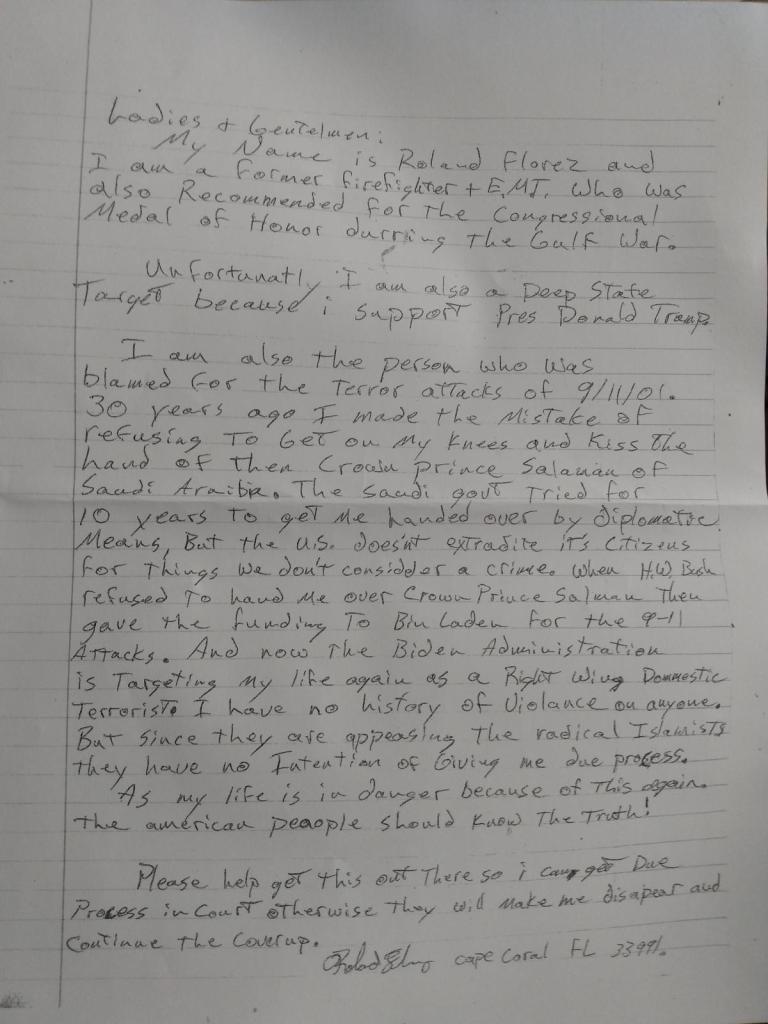 Ladies + Geutelmen:
My Name is Roland Florez and
I am a former firefighter + E.M.T. Who was
also Recommended for The Congressional
Medal of Honor durring The Gulf War.
Unfortunatly I am also a Deep State
Target because i support Pres Donald Trump
I am also the person who was
blamed for the Terror attacks of 9/11/01.
30 years ago I made the Mistake of
refusing To Get on My Knees and Kiss the
hand of then Crown prince Salaman of
Saudi Araibia. The Saudi govt Tried for
10 years to get Me handed over by diplomatic
Means, But the U.S. doesn't extradite it's Citizens
for Things we don't considder a crime. When H.W. Bush
refused To hand Me over Crown Prince Salman Then
gave the funding To Bin Laden for the 9-11
Attacks. And now The Biden Administration
is Targeting My life again as a Right Wing Dommestic
Terrorist. I have no history of Violance on anyone.
But since they are appeasing The radical Islamists
they have no Intention of Giving me due process.
As my life is in danger because of This again.
the american peaople should Know The Truth!
Please help get this out There so i can get Due
Process in Court otherwise they will Make me disapear and
Continue the Coverup.
Cape Coral FL 33991.